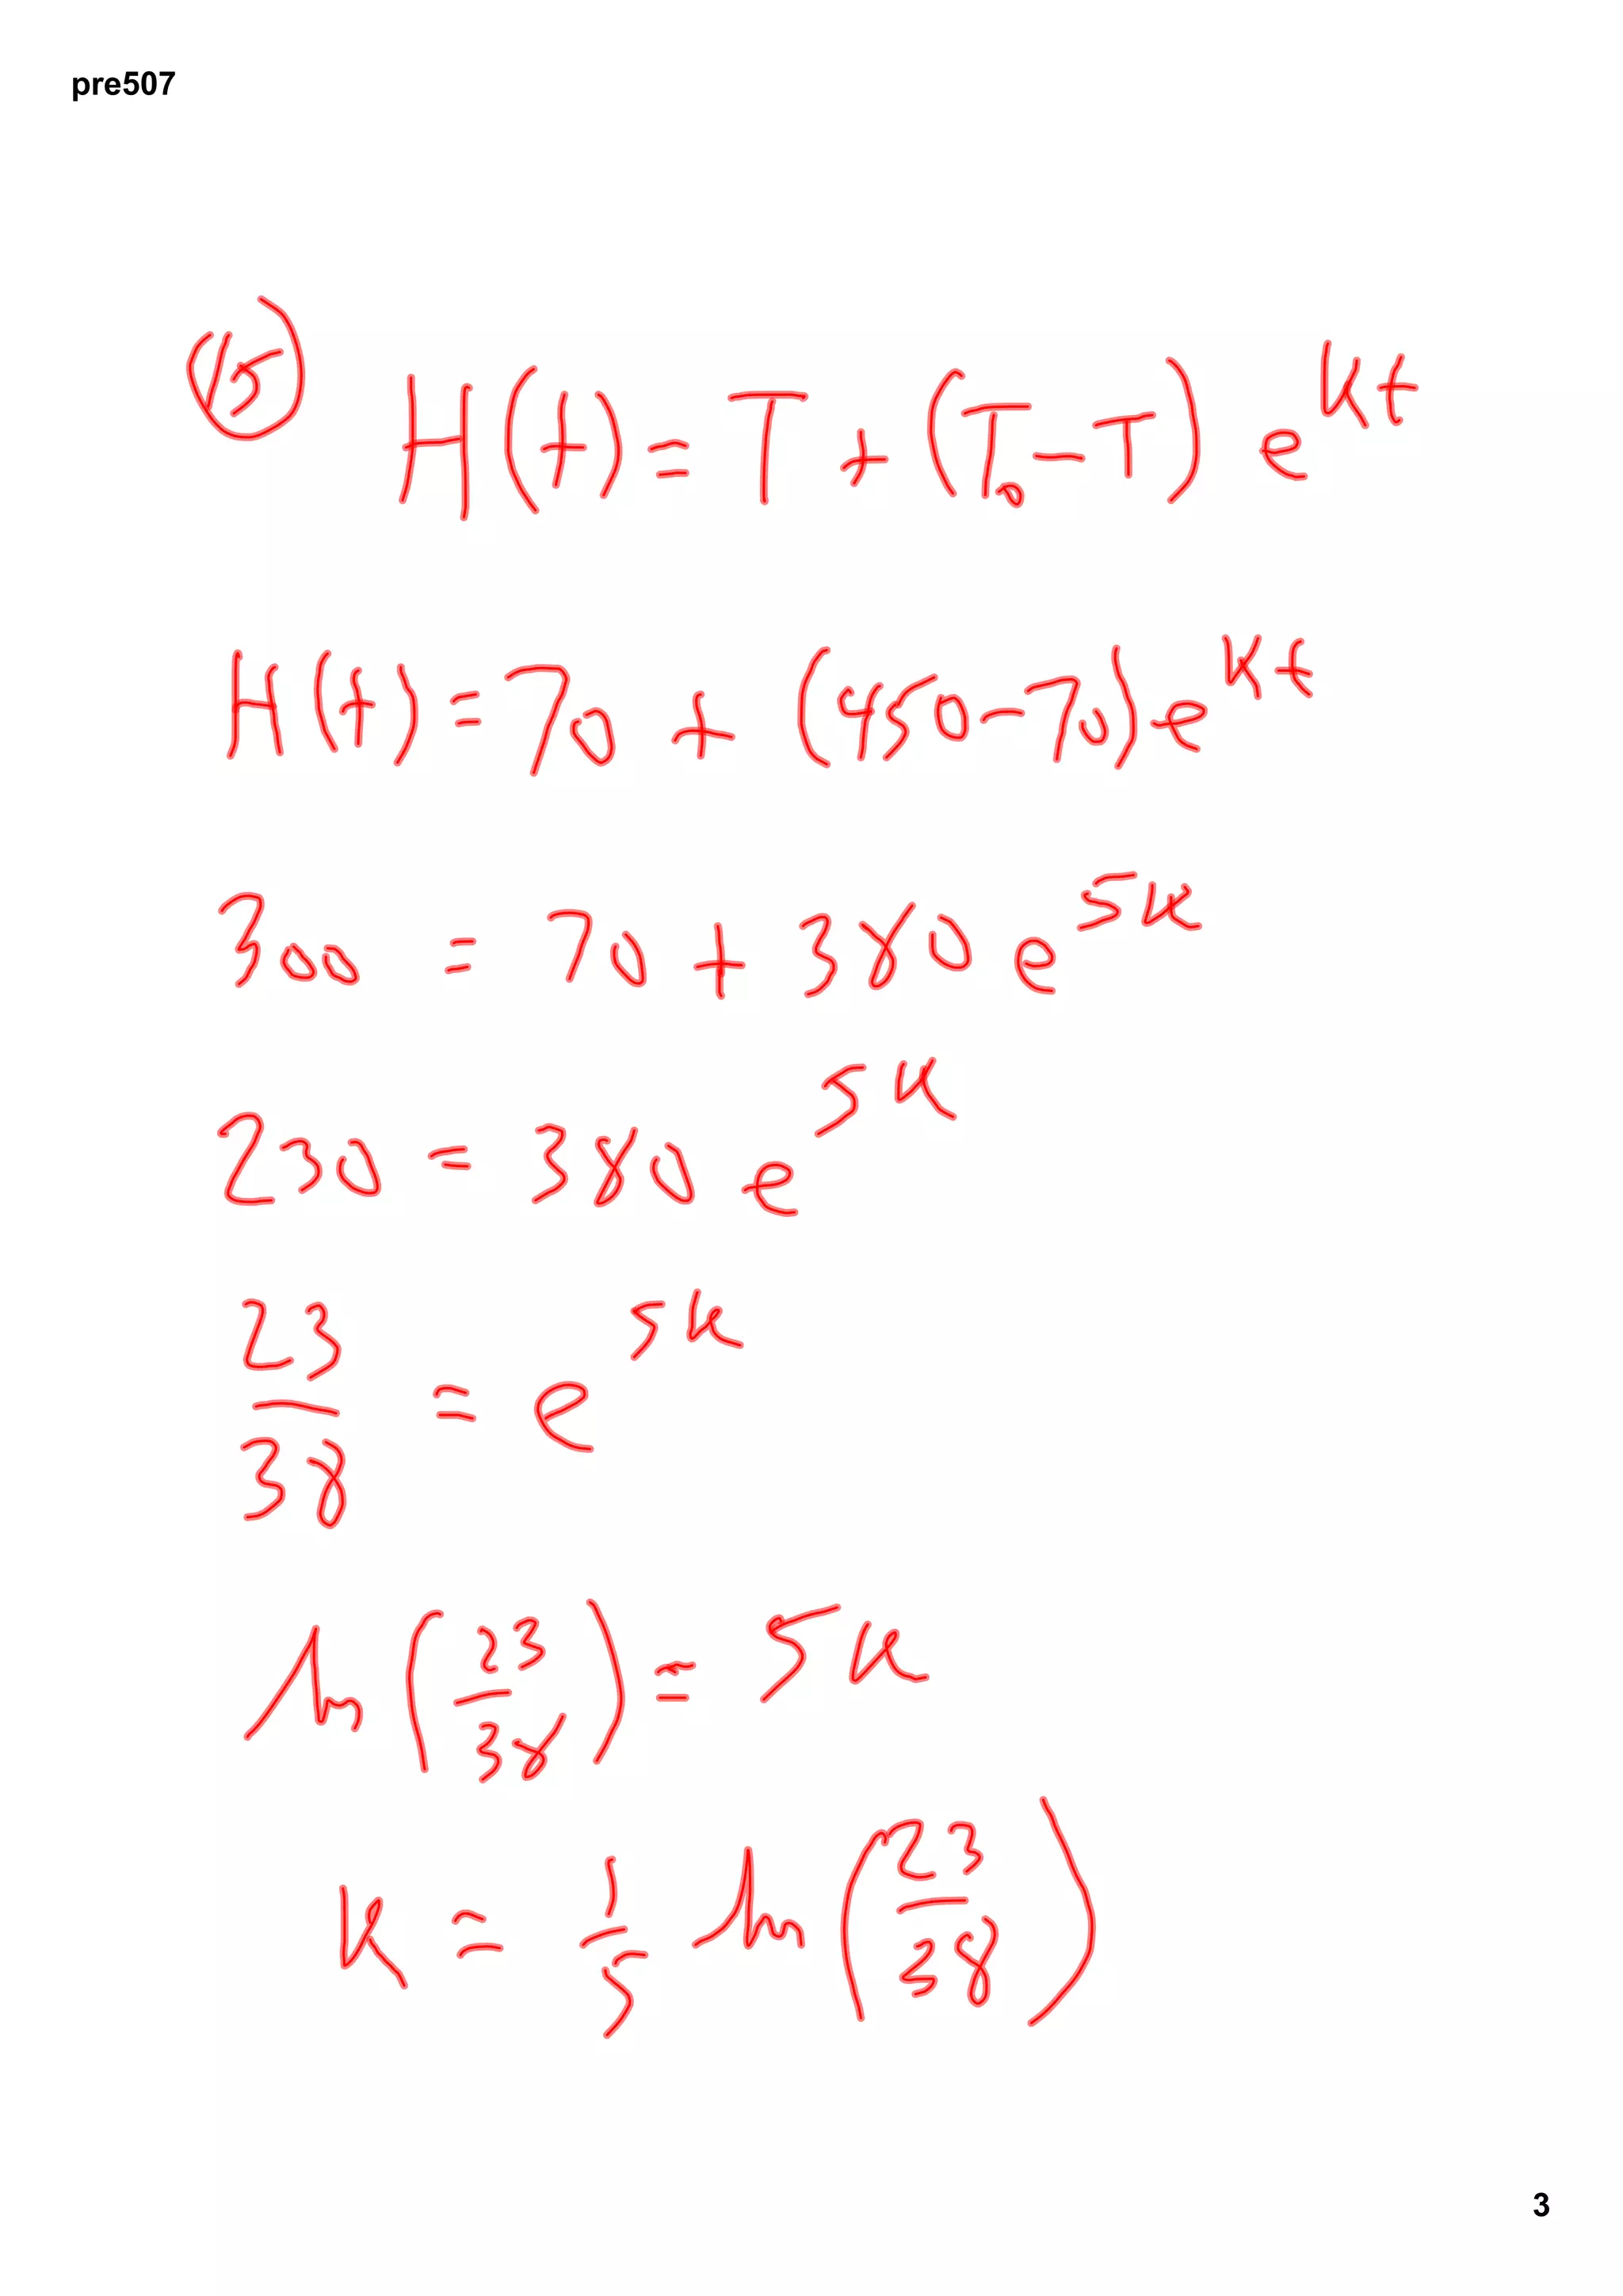 pre507
(15) H(t) = T + (T₀ - T) e^{kt}
H(t) = 70 + (450 - 70) e^{kt}
300 = 70 + 380 e^{5k}
230 = 380 e^{5k}
23/38 = e^{5k}
ln(23/38) = 5k
k = 1/5 ln(23/38)
3